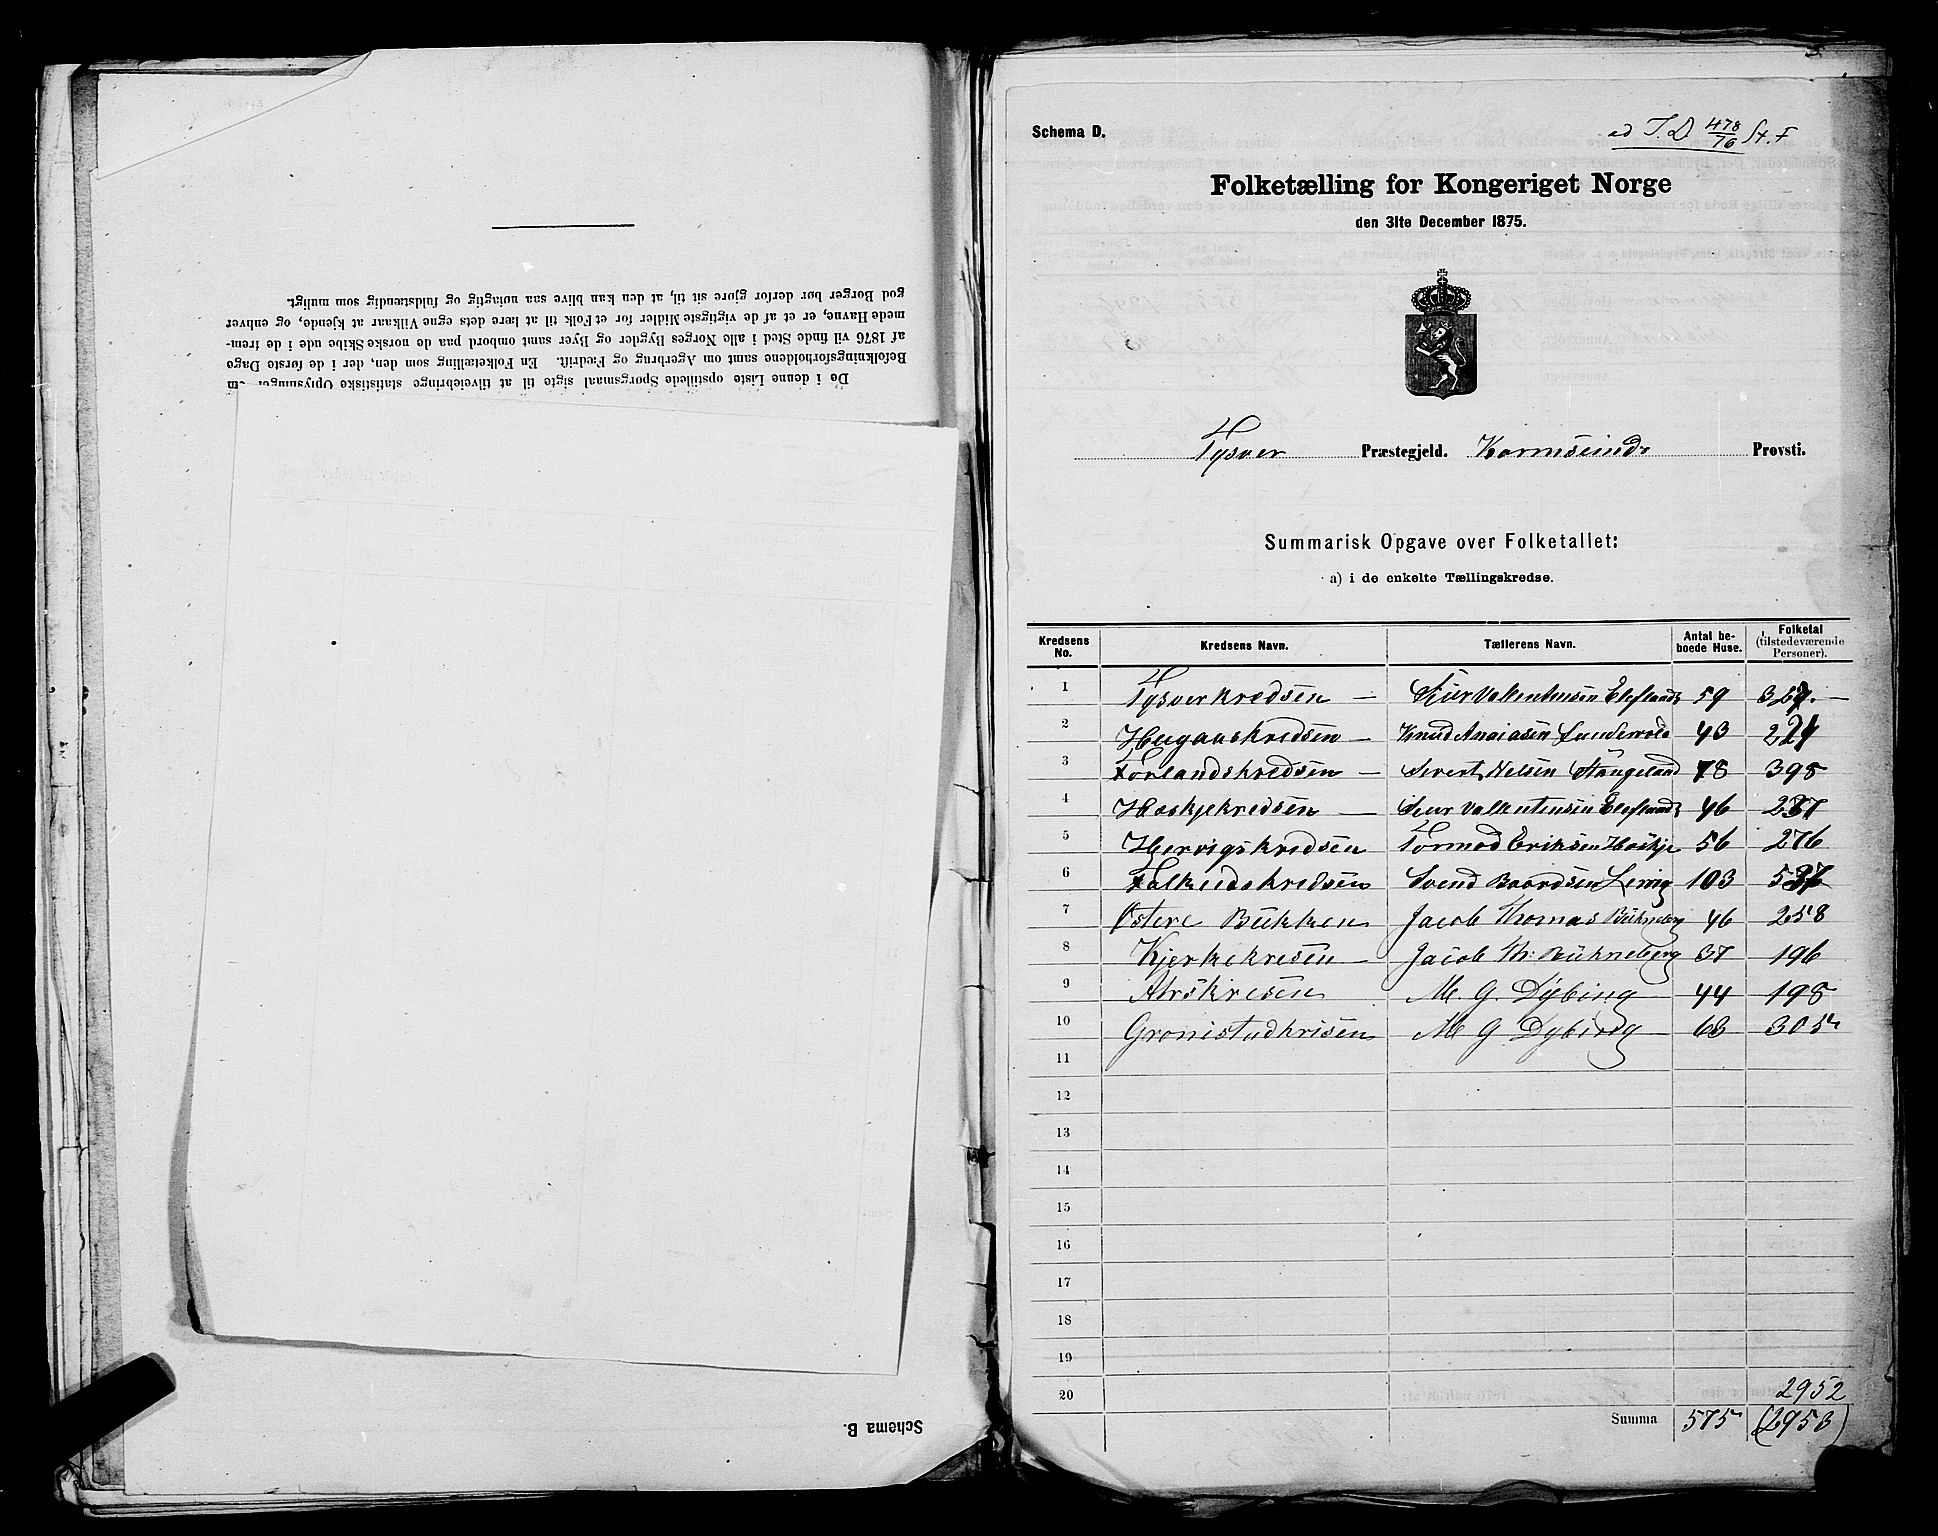 De i denne Liste opstillede Spørgsmaal sigte til at tilveiebringe statistiske Oplysninger om
Befolkningsforholdene samt om Agerbrug og Fædrift. En Folketælling som den, der i de første Dage
af 1876 vil finde Sted i alle Norges Bygder og Byer samt ombord paa de norske Skibe ude i de frem-
mede Havne, er et af de vigtigste Midler for et Folk til at lære dets egne Vilkaar at kjende, og enhver
god Borger bør derfor gjøre sit til, at den kan blive saa nøiagtig og fuldstændig som muligt.
Schema B.
Schema D.
ad I.D. 478/76 St. F
Folketælling for Kongeriget Norge
den 31te December 1875.
Tysver Præstegjeld. Karmsunds Provsti.
Summarisk Opgave over Folketallet:
a) i de enkelte Tællingskredse.
Kredsens No. Kredsens Navn. Tællerens Navn. Antal beboede Huse. Folketal (tilstedeværende Personer).
1 Tysverkredsen — Valentinsen 59
2 Knud 43
3 Førlandskredsen — Sivert Nelsen Stangeland 78 398
4 Høskjekredsen — Valentinsen 46
5 Hervigskredsen Tormod Eriksen Høskje 56 276
6 Falkeidskredsen Svend Baardsen Lervig 103
7 Østere Bukken Jacob Thomas 46 258
8 Kjerkekresen — Jacob Th: 37 196
9 M. G. Dybing 44 198
10 M G Dybing 63 305
11
12
13
14
15
16
17
18
19
20 2952
Summa 575 (2953)